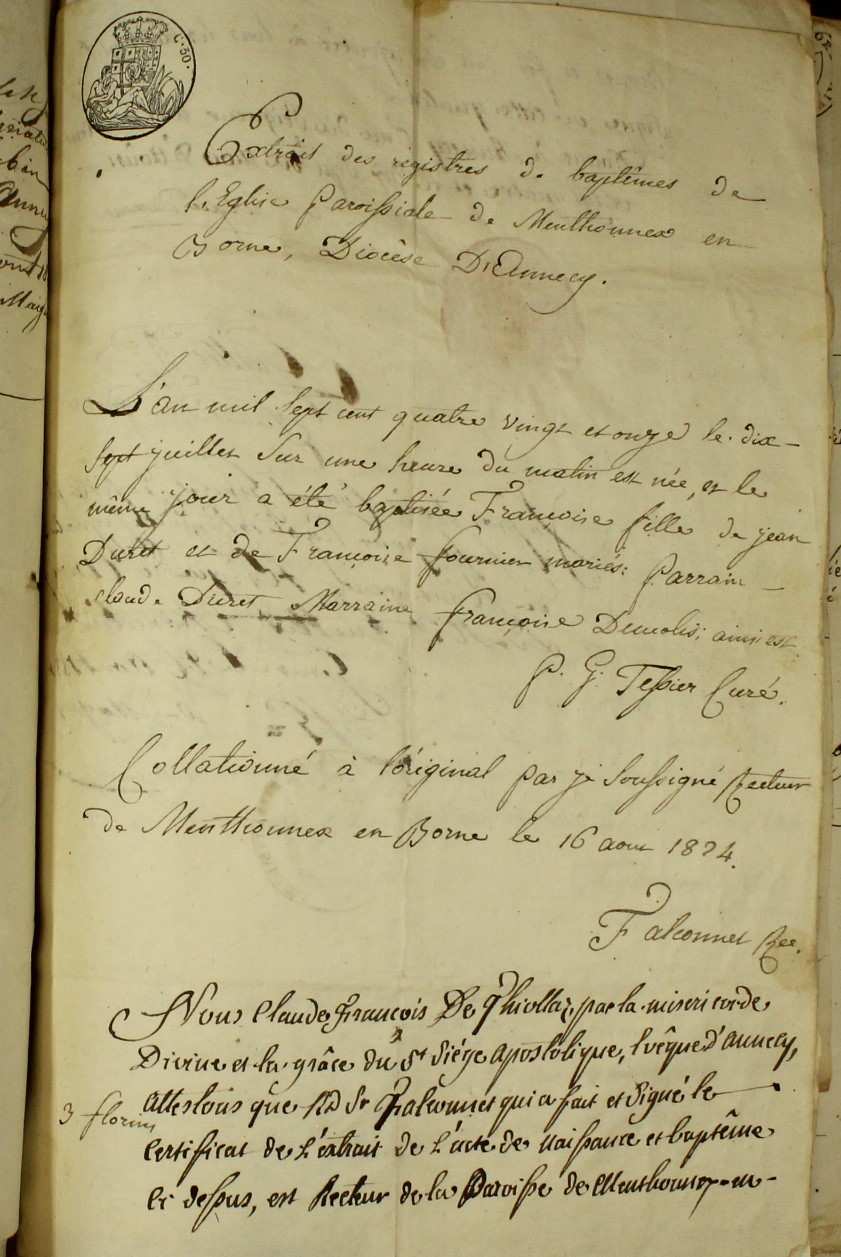 C. 50.
Extrait des registres de baptêmes de
l'Eglise Paroissiale de Menthonnex en
Borne, Diocèse D'Annecy.
L'an mil sept cent quatre vingt et onze le dix
sept juillet sur une heure du matin est née, et le
même jour a été baptisée Françoise fille de jean
Duret et de Françoise fournier mariés: Parrain
claude Duret Marraine françoise Demolis; ainsi est
P. G. Tessier Curé.
Collationné à l'original par je soussigné Recteur
de Menthonnex en Borne le 16 aout 1824.
Falconnet Rec.
Nous Claude françois De Thiollaz, par la misericorde
Divine et la grâce du St Siége Apostolique, Evêque d'Annecy,
Attestons que Rd Sr Falconnet qui a fait et signé le
3 florins
certificat de l'extrait de l'acte de naissance et baptême
ci dessus, est Recteur de la Paroisse de Menthonnex-en-